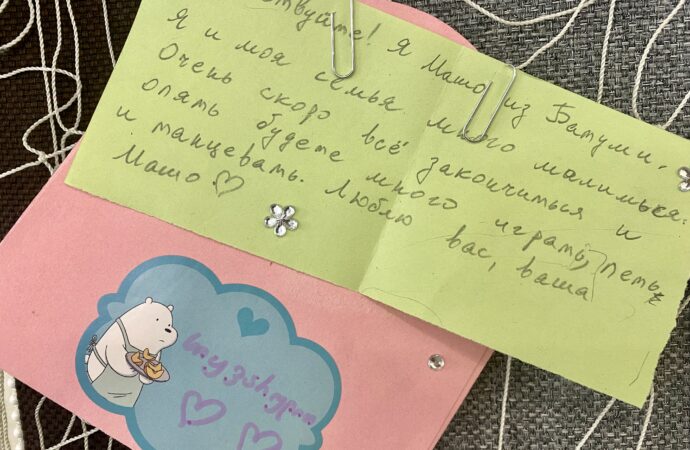 ствуйте! Я Машо из Батуми.
Я и моя семья много малимька.
Очень скоро всё закончиться и
опять будете много играть, петь
и танцевать. Люблю вас, ваша
Машо ♡